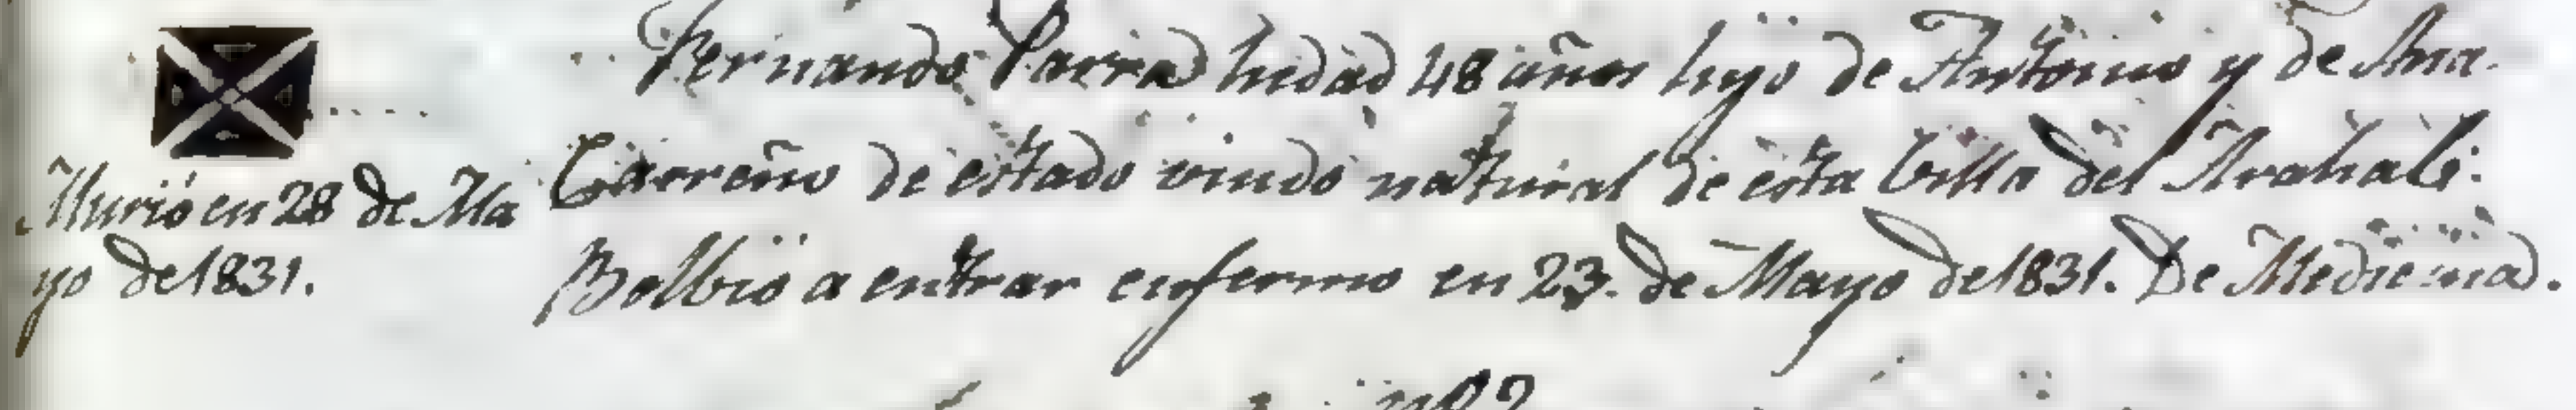 Murió en 28 de Ma
yo de 1831.
Fernando Parra hedad 48 años hijo de Antonio y de Ana
Carreño de estado viudo natural de esta Villa del Arahal:
Bolbió a entrar enfermo en 23. de Mayo de 1831. De Medicina.